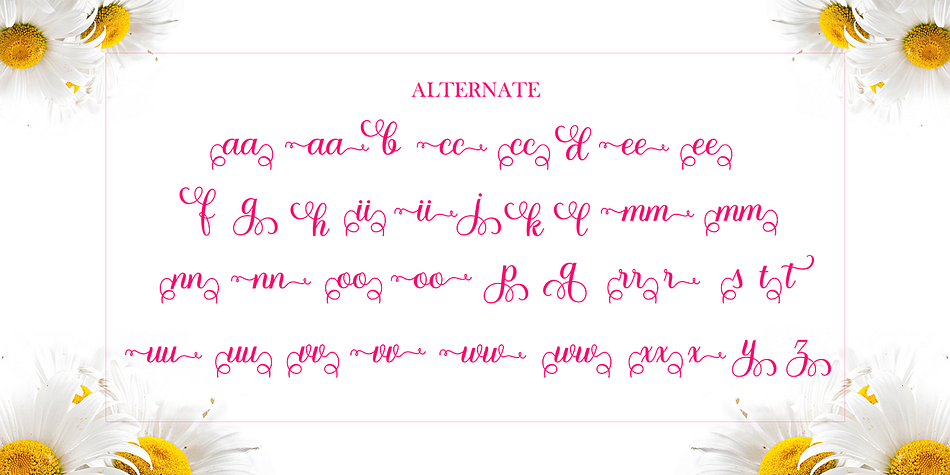 ALTERNATE
aa aa b cc cc d ee ee
f g h ii ii j k l mm mm
nn nn oo oo p q rr r s t t
uu uu vv vv ww ww xx x y z